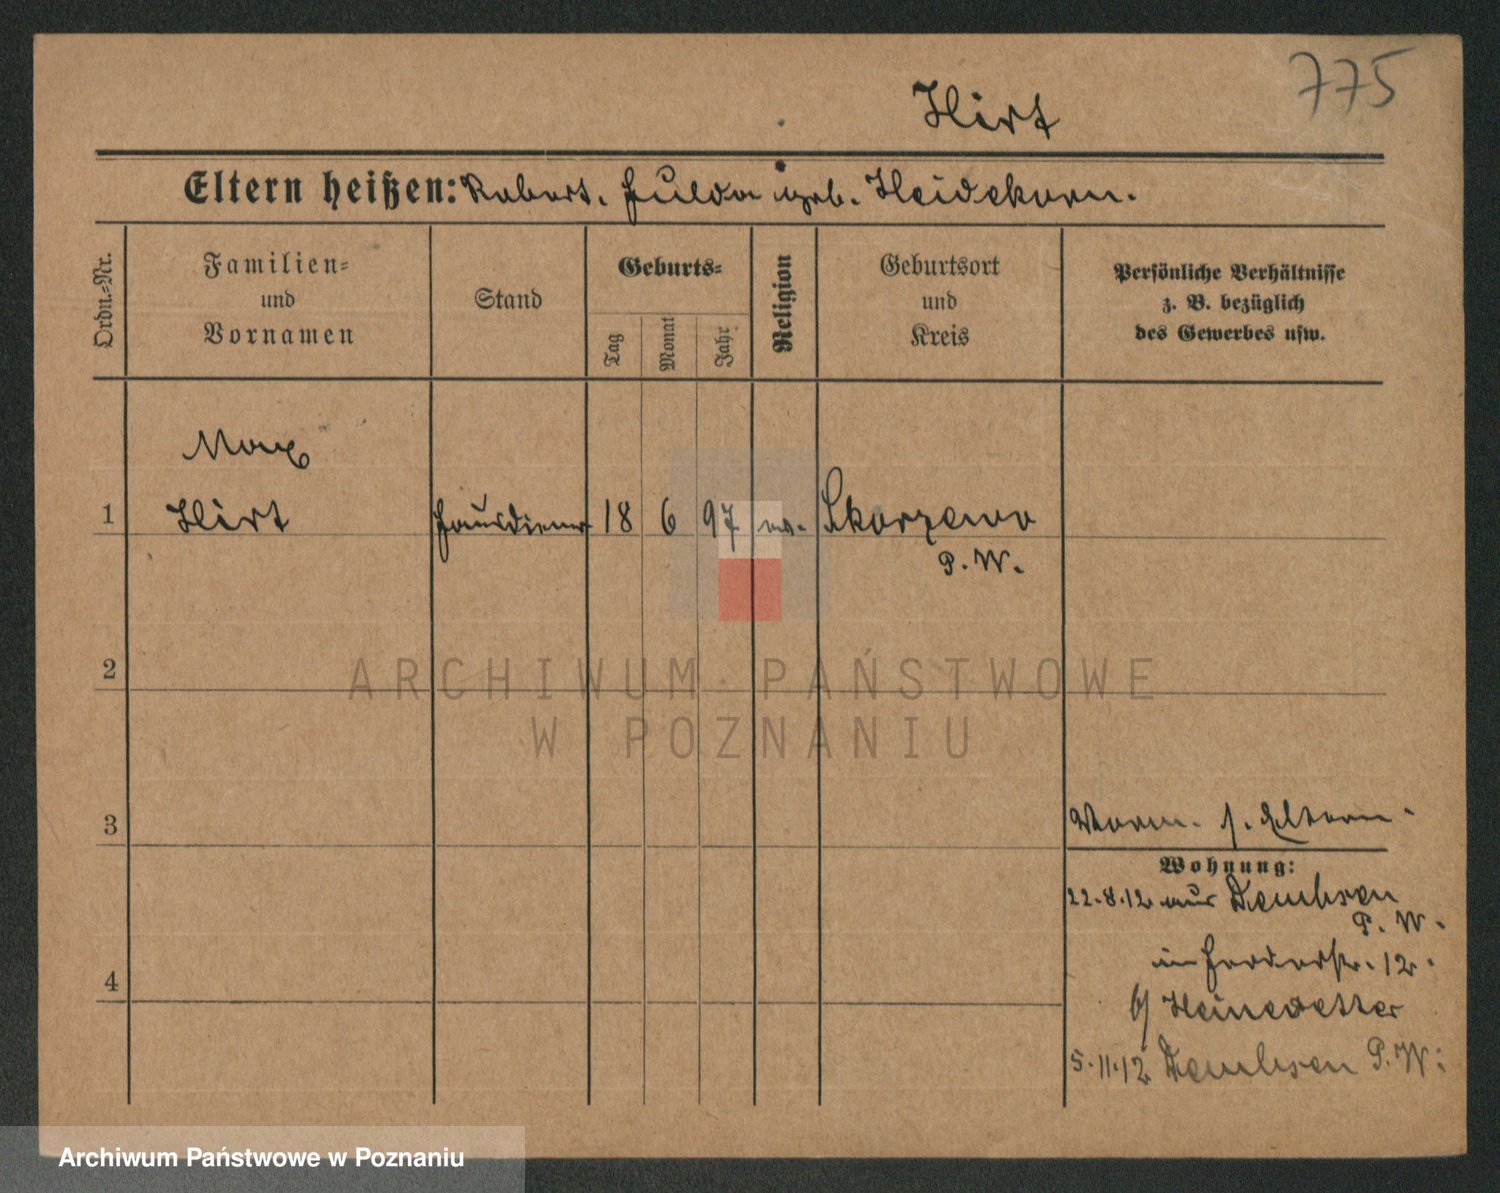 775
Hirt
Eltern heißen: Robert. Hulda geb. Heidekorn.
Ordn.-Nr.
Familien-
und
Vornamen
Stand
Geburts-
Tag
Monat
Jahr
Religion
Geburtsort
und
Kreis
Persönliche Verhältnisse
z. B. bezüglich
des Gewerbes usw.
Max
1 Hirt Hausdiener 18 6 97 ev. Skorzewo
P. W.
2
ARCHIWUM PAŃSTWOWE
W POZNANIU
3
Vorm. s. Eltern.
Wohnung:
22.8.12 aus Dembsen
P. W.
in Halbdorfstr. 12.
4
b/ Heinevetter
5.11.12 Dembsen P. W.
Archiwum Państwowe w Poznaniu